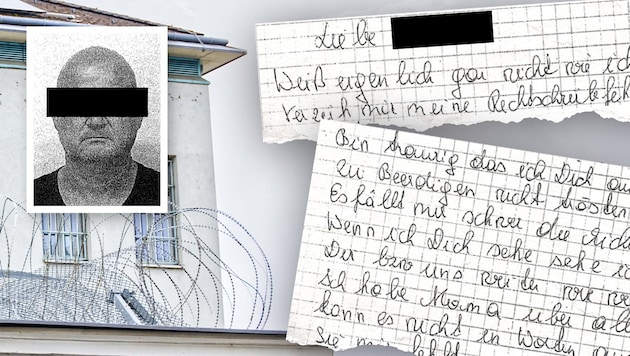 Liebe
Weiß eigenlich gar nicht wie ich
Verzeih mir meine Rechtschreibefeh
Bin traurig das ich Dich au
zu Beerdigen nicht
Es fällt mir schwer die
Wenn ich Dich sehe sehe i
Du uns
Ich habe Mama über all
kann es nicht in Worten
Sie mir fehlt